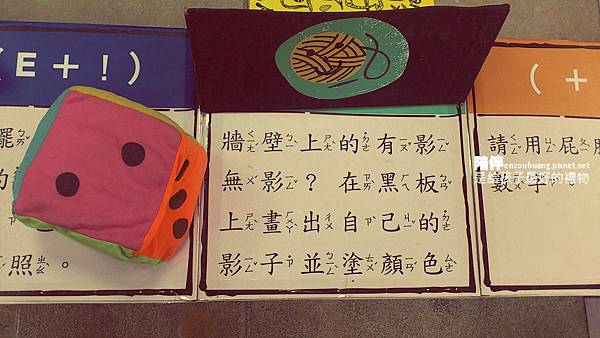 (E+!)
擺
照。
牆壁上的有影
無影？在黑板
上畫出自己的
影子並塗顏色
(+
請用屁
數字。
陪伴
enzouhuang.pixnet.net
是給孩子最好的禮物